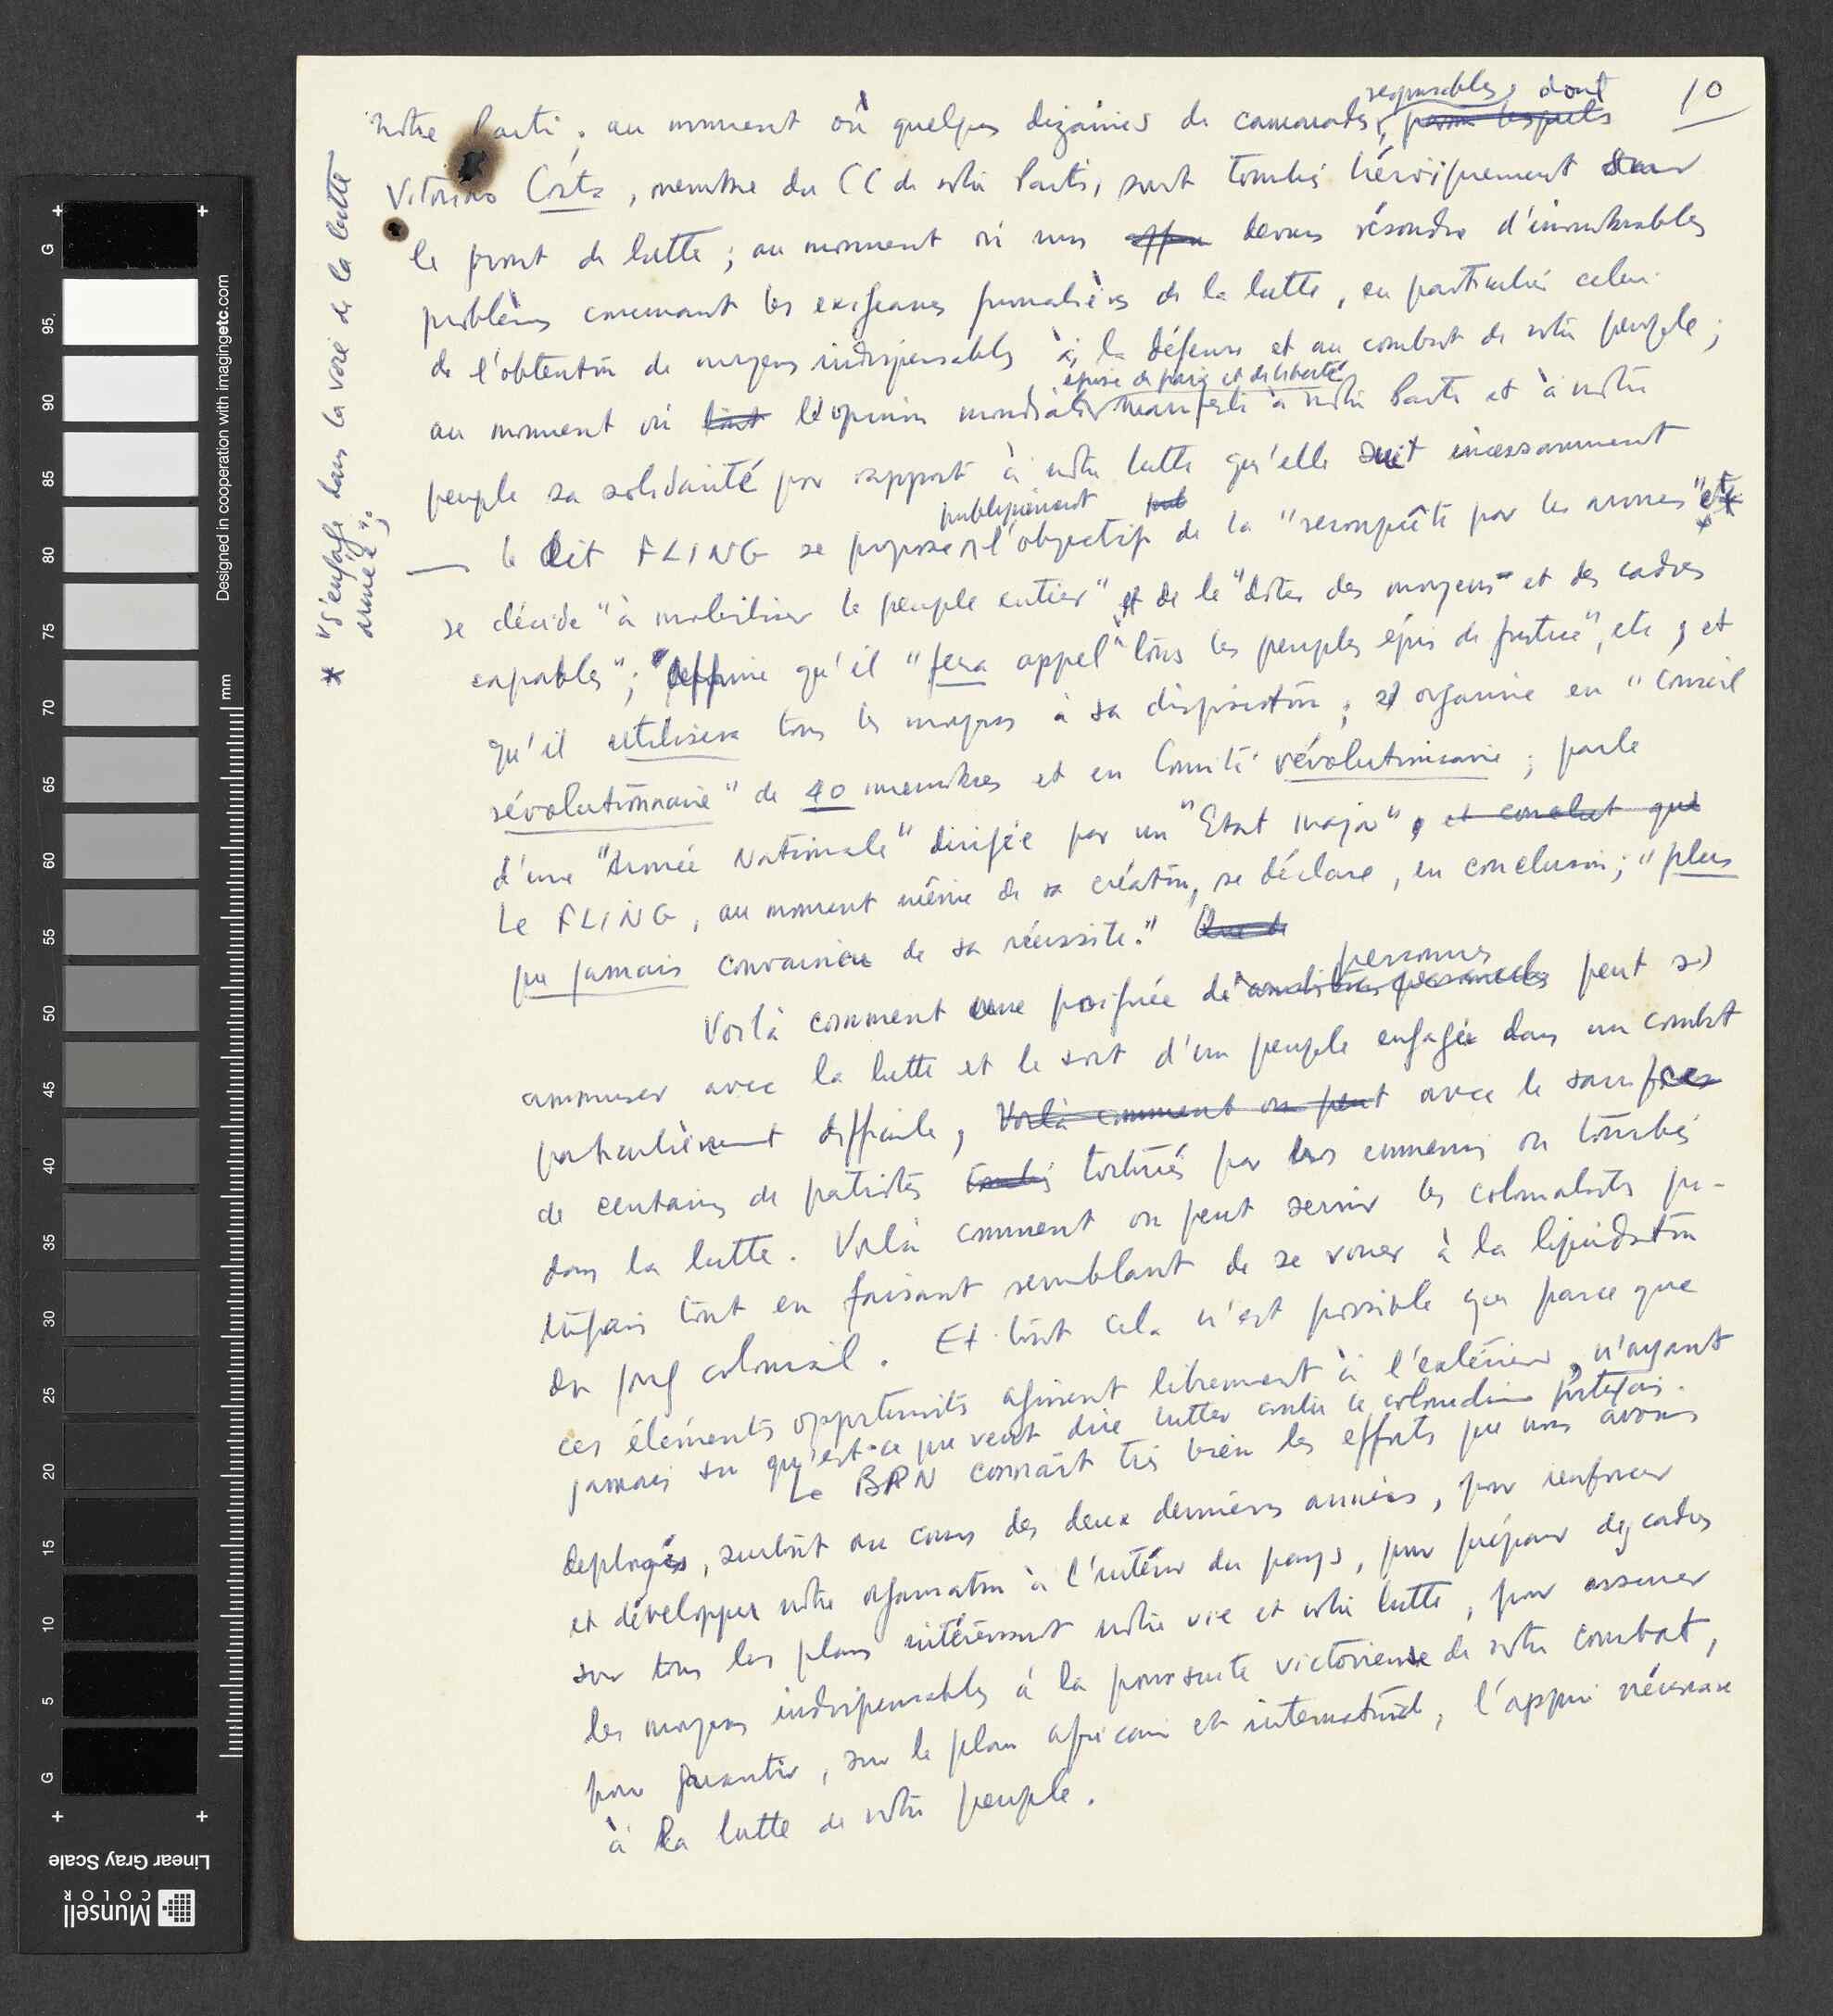 10
responsables, dont
notre Parti ; au moment où quelques dizaines de camarades, parmi lesquels
Vitorino Costa, membre du CC de notre Parti, sont tombés héroïquement sur
le front de lutte ; au moment où nous devons résoudre d'innombrables
problèmes concernant les exigences journalières de la lutte, en particulier celui
de l'obtention de moyens indispensables à la défense et au combat de notre peuple ;
éprise de paix et de liberté
au moment où tout l'opinion mondiale manifeste à notre Parti et à notre
peuple sa solidarité par rapport à notre lutte qu'elle suit incessamment
publiquement pub
— le dit FLING se propose l'objectif de la "reconquête par les armes" et *
se décide "à mobiliser le peuple entier" et de le "doter des moyens" et des cadres
capables" ; affirme qu'il "fera appel à tous les peuples épris de justice", etc, et
qu'il utilisera tous les moyens à sa disposition ; s'organise en "Conseil
révolutionnaire" de 40 membres et en Comité révolutionnaire ; parle
d'une "Armée Nationale" dirigée par un "Etat Major", et conclut que
Le FLING, au moment même de sa création, se déclare, en conclusion ; "plus
que jamais convaincu de sa réussite."
personnes
Voilà comment une poignée d'ambitieux personnels peut s'
ammuser avec la lutte et le sort d'un peuple engagé dans un combat
particulièrement difficile, Voilà comment on peut avec le sacrifice
de centaines de patriotes tombés torturés par les ennemis ou tombés
dans la lutte. Voilà comment on peut servir les colonialistes por-
tugais tout en faisant semblant de se vouer à la liquidation
du joug colonial. Et tout cela n'est possible que parce que
ces éléments opportunistes agissent librement à l'extérieur, n'ayant
jamais su qu'est-ce que veut dire lutter contre le colonialisme portugais.
Le BPN connait très bien les efforts que nous avons
deployés, surtout au cours des deux dernières années, pour renforcer
et développer notre organisation à l'intérieur du pays, pour préparer des cadres
sur tous les plans intéressant notre vie et notre lutte, pour assurer
les moyens indispensables à la poursuite victorieuse de notre combat,
pour garantir, sur le plan africain et international, l'appui nécessaire
à la lutte de notre peuple.
* "s'engage dans la voie de la lutte
armée" ;
Designed in cooperation with imagingetc.com
mm
G
95.
90
85
80
75
70
65
60
55
50
45
40
35
30
25
20
15
10
5
G
Linear Gray Scale
Munsell
COLOR